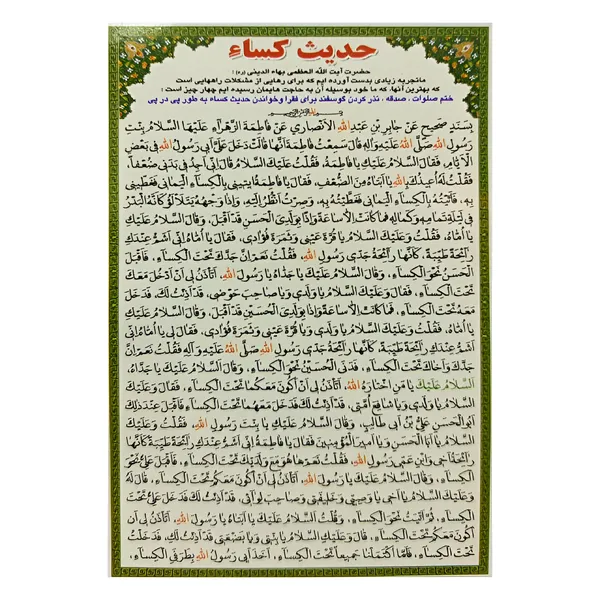 حدیث کساء
حضرت آیت الله العظمی بهاء الدینی (ره) :
ما تجربه زیادی بدست آورده ایم که برای رهایی از مشکلات راههایی است
که بهترین آنها، که ما خود بوسیله آن به حاجت هایمان رسیده ایم چهار چیز است :
ختم صلوات ، صدقه ، نذر کردن گوسفند برای فقرا و خواندن حدیث کساء به طور پی در پی
بِسَنَدٍ صَحیحٍ عَنْ جابِرِ بْنِ عَبْدِ اللهِ الْاَنْصاریِّ عَنْ فاطِمَةَ الزَّهْرآءِ عَلَیْهَا السَّلامُ بِنْتِ
رَسُولِ اللهِ صَلَّی اللهُ عَلَیْهِ وَآلِهِ قالَ سَمِعْتُ فاطِمَةَ اَنَّها قالَتْ دَخَلَ عَلَیَّ اَبی رَسُولُ اللهِ فی بَعْضِ
الْاَیّامِ، فَقالَ السَّلامُ عَلَیْكِ یا فاطِمَةُ، فَقُلْتُ عَلَیْكَ السَّلامُ قالَ اِنّی اَجِدُ فی بَدَنی ضُعْفاً،
فَقُلْتُ لَهُ اُعیذُكَ بِاللهِ یا اَبَتاهُ مِنَ الضُّعْفِ، فَقالَ یا فاطِمَةُ ایتینی بِالْکِسآءِ الْیَمانی فَغَطّینی
بِهِ، فَاَتَیْتُهُ بِالْکِسآءِ الْیَمانی فَغَطَّیْتُهُ بِهِ، وَصِرْتُ اَنْظُرُ اِلَیْهِ، وَاِذا وَجْهُهُ یَتَلَأْلَؤُ کَاَنَّهُ الْبَدْرُ
فی لَیْلَةِ تَمامِهِ وَکَمالِهِ فَما کانَتْ اِلّا ساعَةً وَاِذا بِوَلَدِیَ الْحَسَنِ قَدْ اَقْبَلَ، وَقالَ السَّلامُ عَلَیْكِ
یا اُمّاهُ، فَقُلْتُ وَعَلَیْكَ السَّلامُ یا قُرَّةَ عَیْنی وَثَمَرَةَ فُؤادی، فَقالَ یا اُمّاهُ اِنّی اَشَمُّ عِنْدَكِ
رآئِحَةً طَیِّبَةً، کَاَنَّها رآئِحَةُ جَدّی رَسُولِ اللهِ، فَقُلْتُ نَعَمْ اِنَّ جَدَّكَ تَحْتَ الْکِسآءِ، فَاَقْبَلَ
الْحَسَنُ نَحْوَ الْکِسآءِ، وَقالَ السَّلامُ عَلَیْكَ یا جَدّاهُ یا رَسُولَ اللهِ، اَتَاْذَنُ لی اَنْ اَدْخُلَ مَعَكَ
تَحْتَ الْکِسآءِ، فَقالَ وَعَلَیْكَ السَّلامُ یا وَلَدی وَیا صاحِبَ حَوْضی، قَدْ اَذِنْتُ لَكَ، فَدَخَلَ
مَعَهُ تَحْتَ الْکِسآءِ، فَما کانَتْ اِلّا ساعَةً وَاِذا بِوَلَدِیَ الْحُسَیْنِ قَدْ اَقْبَلَ، وَقالَ السَّلامُ عَلَیْكِ
یا اُمّاهُ، فَقُلْتُ وَعَلَیْكَ السَّلامُ یا وَلَدی وَیا قُرَّةَ عَیْنی وَثَمَرَةَ فُؤادی، فَقالَ لی یا اُمّاهُ اِنّی
اَشَمُّ عِنْدَكِ رآئِحَةً طَیِّبَةً، کَاَنَّها رآئِحَةُ جَدّی رَسُولِ اللهِ صَلَّی اللهُ عَلَیْهِ وَآلِهِ فَقُلْتُ نَعَمْ اِنَّ
جَدَّكَ وَاَخاكَ تَحْتَ الْکِسآءِ، فَدَنَی الْحُسَیْنُ نَحْوَ الْکِسآءِ، وَقالَ اَلسَّلامُ عَلَیْكَ یا جَدّاهُ،
اَلسَّلامُ عَلَیْكَ یا مَنِ اخْتارَهُ اللهُ، اَتَاْذَنُ لی اَنْ اَکُونَ مَعَکُما تَحْتَ الْکِسآءِ، فَقالَ وَعَلَیْكَ
السَّلامُ یا وَلَدی وَیا شافِعَ اُمَّتی، قَدْ اَذِنْتُ لَكَ فَدَخَلَ مَعَهُما تَحْتَ الْکِسآءِ، فَاَقْبَلَ عِنْدَ ذلِكَ
اَبُوالْحَسَنِ عَلِیُّ بْنُ اَبی طالِبٍ، وَقالَ السَّلامُ عَلَیْكِ یا بِنْتَ رَسُولِ اللهِ، فَقُلْتُ وَعَلَیْكَ
السَّلامُ یا اَبَا الْحَسَنِ وَیا اَمیرَ الْمُؤْمِنینَ فَقالَ یا فاطِمَةُ اِنّی اَشَمُّ عِنْدَكِ رآئِحَةً طَیِّبَةً کَاَنَّها
رآئِحَةُ اَخی وَابْنِ عَمّی رَسُولِ اللهِ، فَقُلْتُ نَعَمْ ها هُوَ مَعَ وَلَدَیْكَ تَحْتَ الْکِسآءِ، فَاَقْبَلَ عَلِیٌّ نَحْوَ
الْکِسآءِ، وَقالَ السَّلامُ عَلَیْكَ یا رَسُولَ اللهِ، اَتَاْذَنُ لی اَنْ اَکُونَ مَعَکُمْ تَحْتَ الْکِسآءِ، قالَ لَهُ
وَعَلَیْكَ السَّلامُ یا اَخی وَیا وَصِیّی وَخَلیفَتی وَصاحِبَ لِوآئی، قَدْ اَذِنْتُ لَكَ، فَدَخَلَ عَلِیٌّ تَحْتَ
الْکِسآءِ، ثُمَّ اَتَیْتُ نَحْوَ الْکِسآءِ، وَقُلْتُ اَلسَّلامُ عَلَیْكَ یا اَبَتاهُ یا رَسُولَ اللهِ، اَتَاْذَنُ لی اَنْ
اَکُونَ مَعَکُمْ تَحْتَ الْکِسآءِ، قالَ وَعَلَیْكِ السَّلامُ یا بِنْتی وَیا بَضْعَتی قَدْ اَذِنْتُ لَكِ، فَدَخَلْتُ
تَحْتَ الْکِسآءِ، فَلَمَّا اکْتَمَلْنا جَمیعاً تَحْتَ الْکِسآءِ، اَخَذَ اَبی رَسُولُ اللهِ بِطَرَفَیِ الْکِسآءِ،